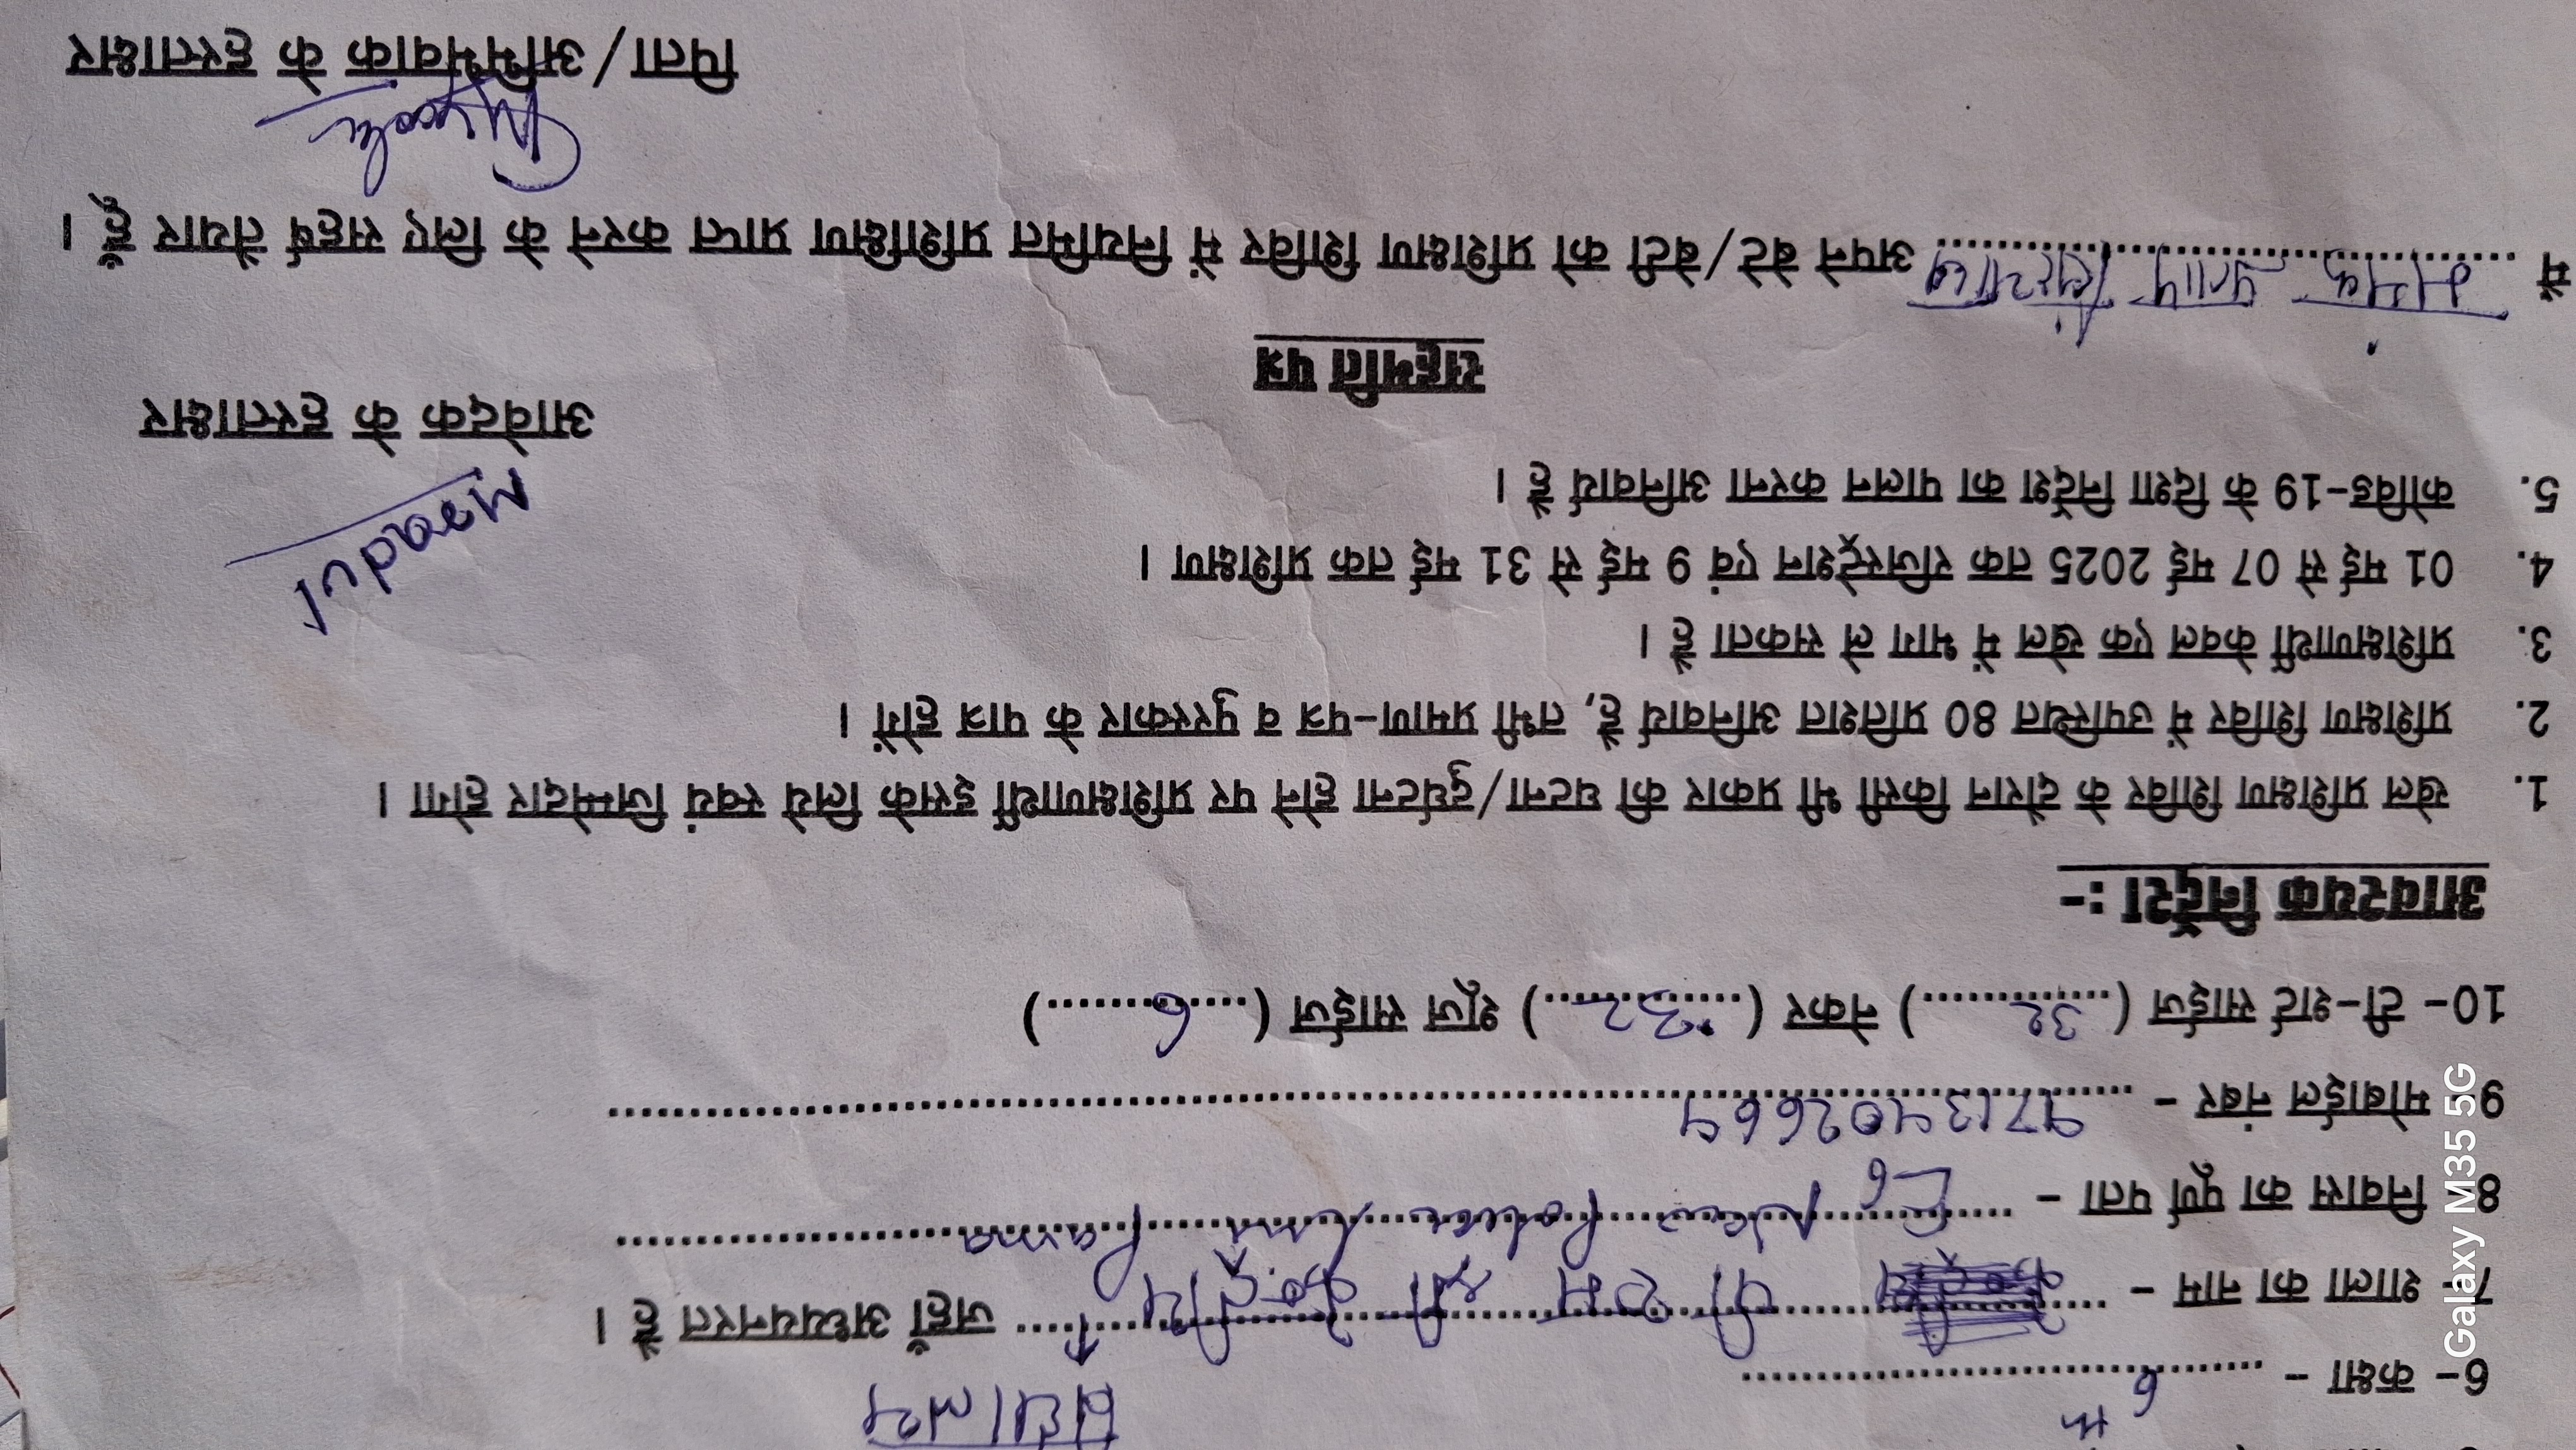 6- कक्षा - 6th
विद्यालय
7- शाला का नाम - पी एम श्री केन्द्रीय जहाँ अध्ययनरत है ।
8 निवास का पूर्ण पता - E6 New Police Line Panna
9- मोबाईल नंबर -
10- टी-शर्ट साईज (32) नेकर (32) शूज साईज (6)
आवश्यक निर्देश :-
1. खेल प्रशिक्षण शिविर के दौरान किसी भी प्रकार की घटना/दुर्घटना होने पर प्रशिक्षणार्थी इसके लिये स्वयं जिम्मेदार होगा ।
2. प्रशिक्षण शिविर में उपस्थित 80 प्रतिशत अनिवार्य है, तभी प्रमाण-पत्र व पुरस्कार के पात्र होगें ।
3. प्रशिक्षणार्थी केवल एक खेल में भाग ले सकता है ।
4. 01 मई से 07 मई 2025 तक रजिस्ट्रेशन एवं 9 मई से 31 मई तक प्रशिक्षण ।
5. कोविड-19 के दिशा निर्देश का पालन करना अनिवार्य है ।
Mradul
आवेदक के हस्ताक्षर
सहमति पत्र
में प्रताप अपने बेटे/बेटी को प्रशिक्षण शिविर में नियमित प्रशिक्षिण प्राप्त करने के लिए सहर्ष तैयार हूँ ।
पिता/अभिभवाक के हस्ताक्षर
Galaxy M35 5G